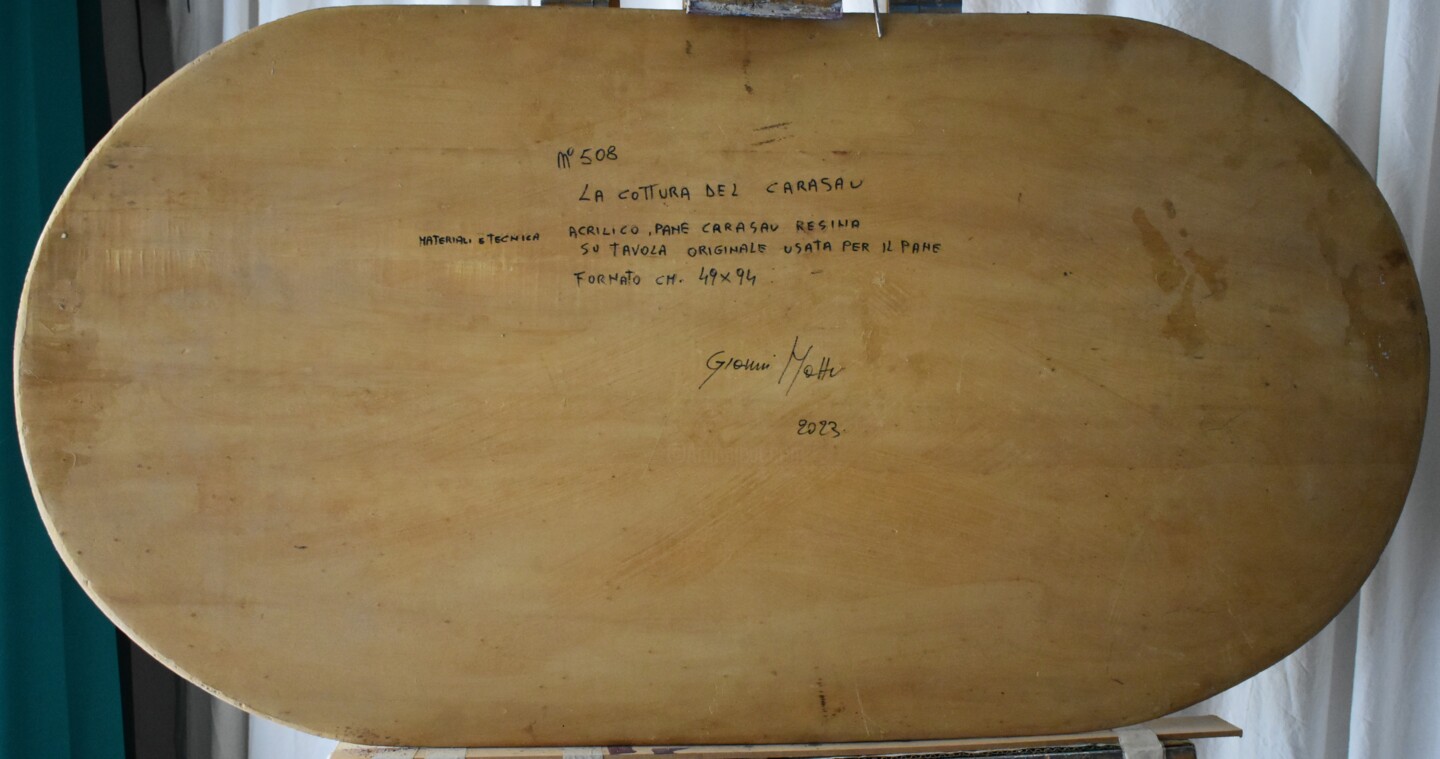 N° 508
LA COTTURA DEL CARASAU
MATERIALI E TECNICA ACRILICO, PANE CARASAU RESINA
SU TAVOLA ORIGINALE USATA PER IL PANE
FORMATO CM. 49x94
Gianni Mattu
2023